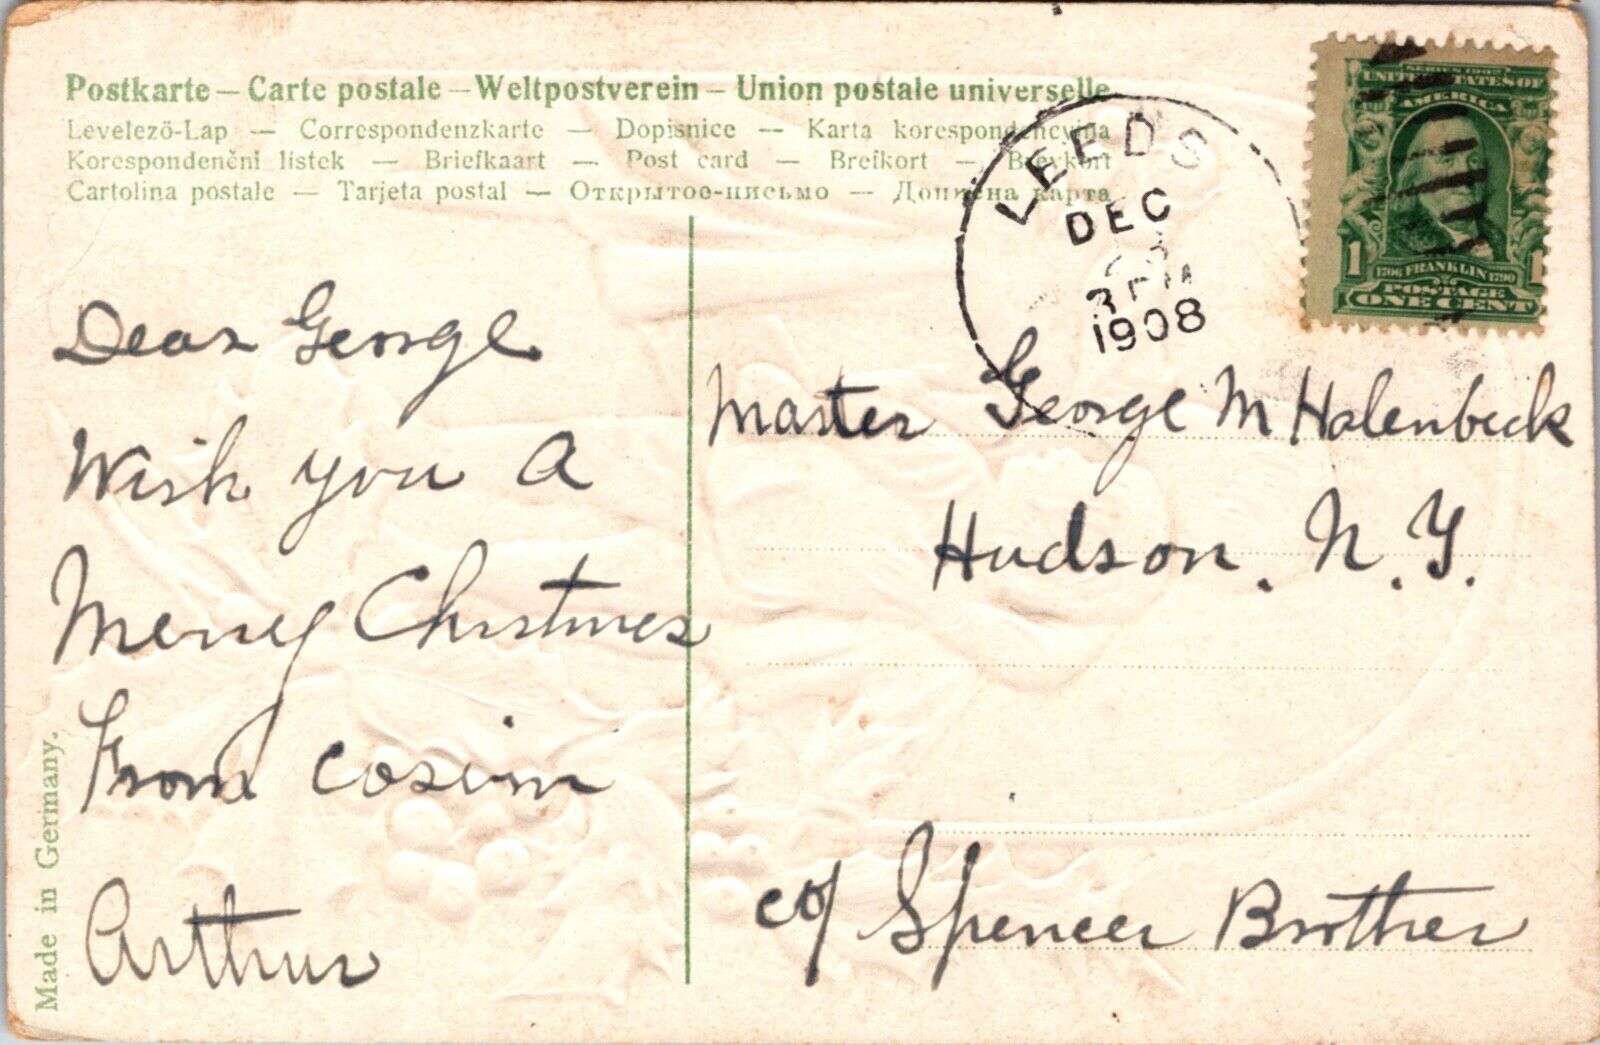 Postkarte – Carte postale – Weltpostverein – Union postale universelle
Levelezö-Lap — Correspondenzkarte — Dopisnice — Karta korespondencyjna
Korespondenční listek — Briefkaart — Post card — Brefkort — Brevkort
Cartolina postale — Tarjeta postal — Открытое-письмо — Дописна карта
LEEDS
DEC
1908
SERIES 1902
UNITED STATES OF
AMERICA
1706 FRANKLIN 1790
1 1
POSTAGE
ONE CENT
Dear George
Wish you a
Merry Christmas
From cosin
Arthur
Master George M Halenbeck
Hudson, N.Y.
c/o Spencer Brother
Made in Germany.